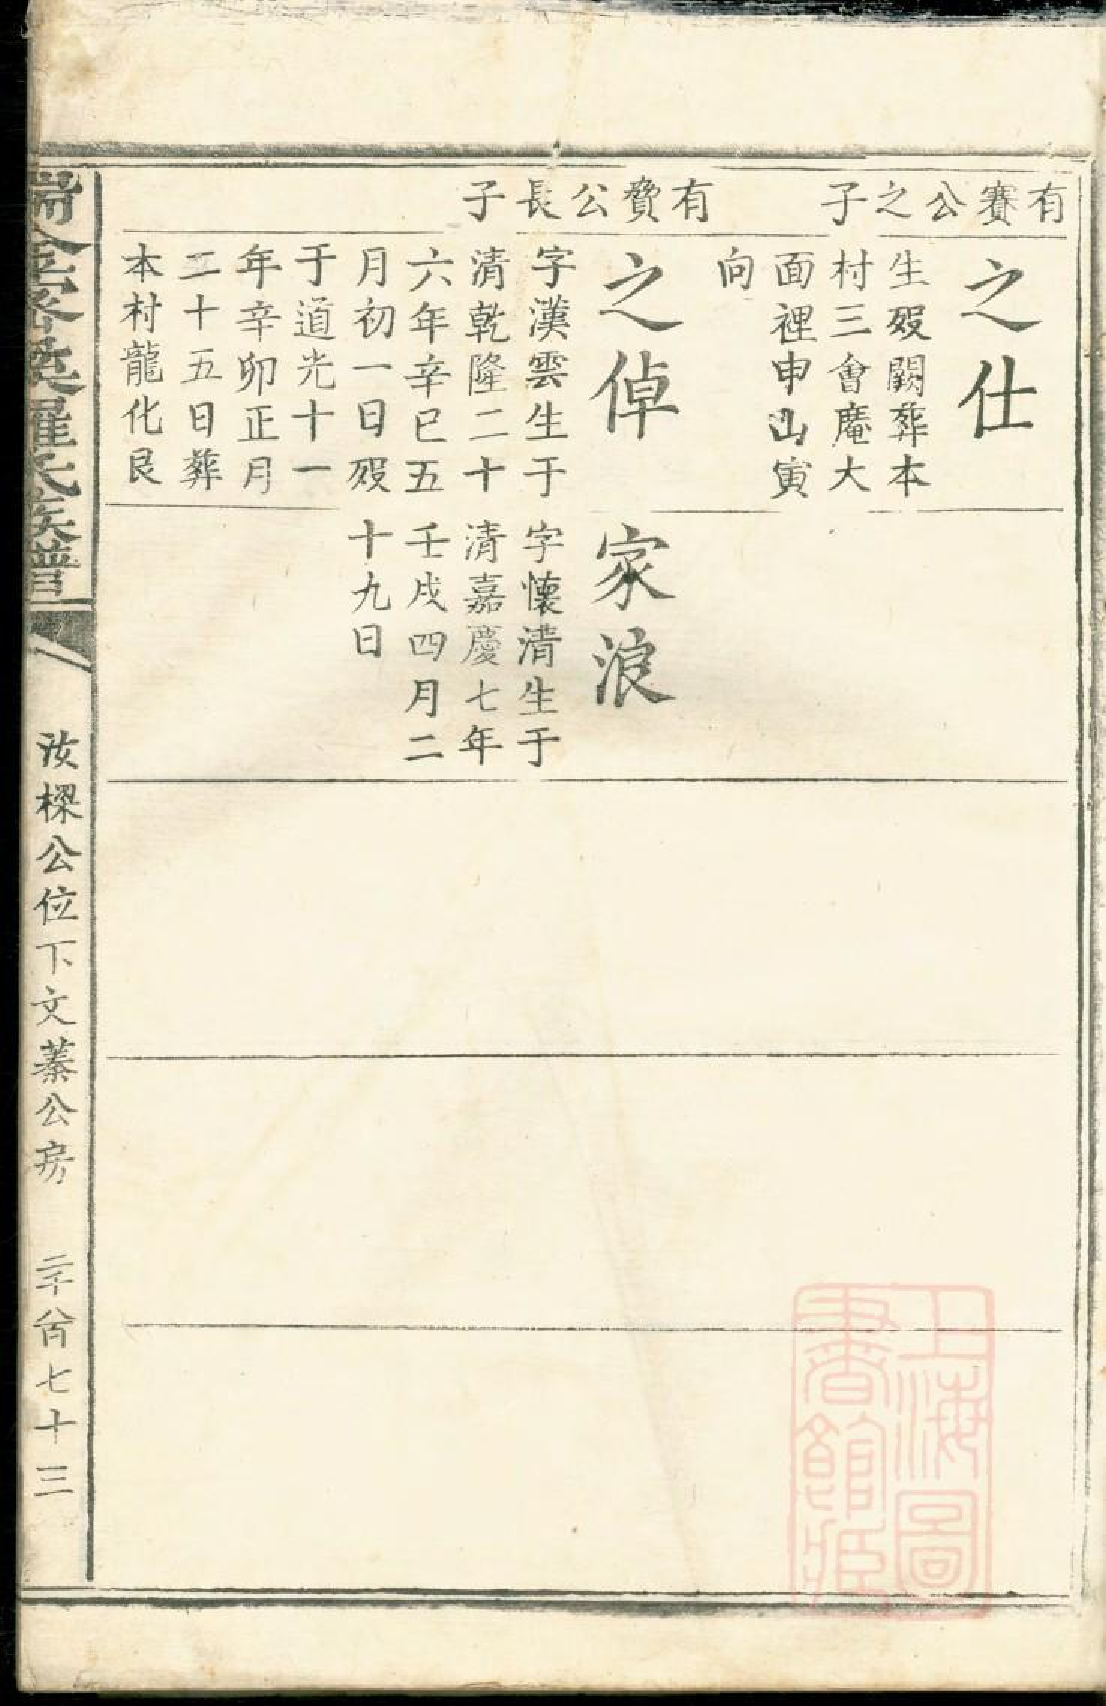 有賽公之子
之仕
生歿闕葬本
村三會庵大
面裡申山寅
向
有費公長子
之倬
字漢雲生于
清乾隆二十
六年辛巳五
月初一日歿
于道光十一
年辛卯正月
二十五日葬
本村龍化艮
家浪
字懷清生于
清嘉慶七年
壬戌四月二
十九日
羅氏族譜
汝樑公位下文蓁公房
七十三
上海圖
書館藏